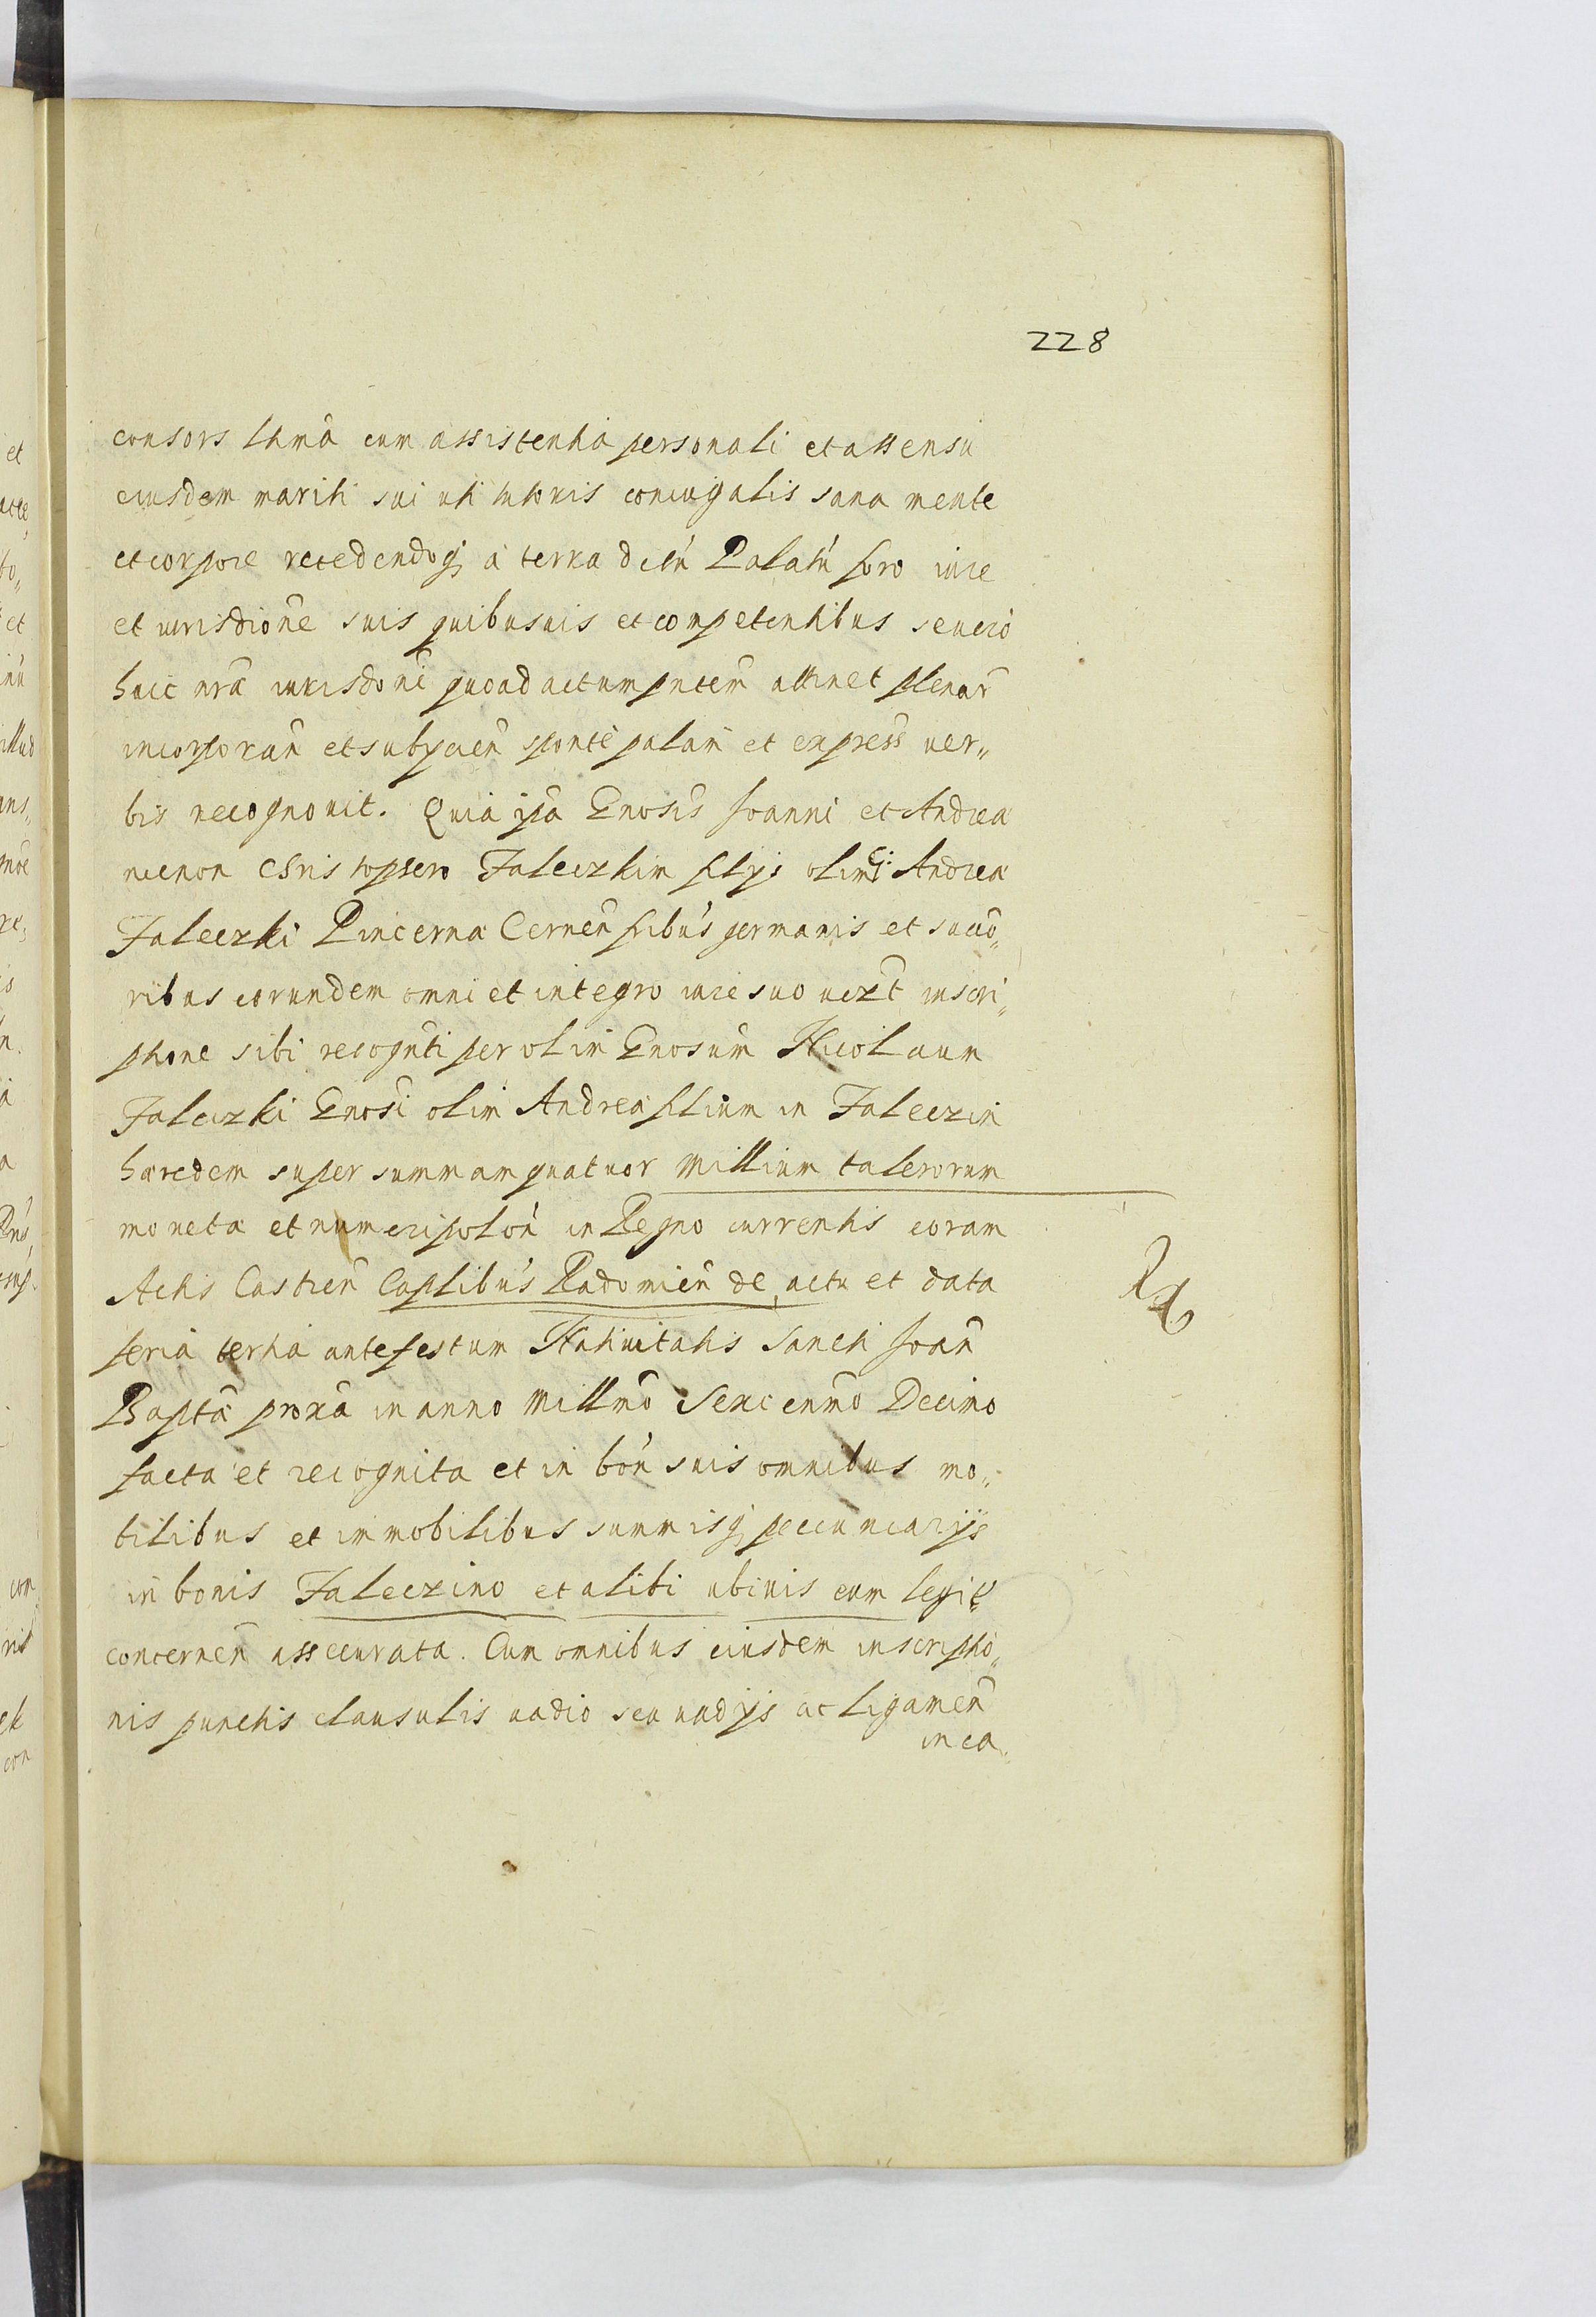 228
consors lt̃ma cum assistentia personali et assensu
eiusdem mariti sui uti tutoris coniugalis sana mente
et corpore recedendoq; à terra
et iurisdiõne suis quibusuis et competentibus seueró
huic nrã iurisdoni quoad actum pñtem attinet plenar̃
incorporan̄ et subycien̄ sponté palam et express̃ uer„
bis recognouit. Quia ipa Gnosis Joanni et Andreæ
necnon Christophero Faleczkim filijs olim Gi: Andreæ
Faleczki Pincernæ Cernen̄ fribus germanis et succo„
ribus eorundem omni et integro iure suo uizt inscri„
ptione sibi recognti per olim Gnosum Nicolaum
Faleczki Gnosi olim Andreæ filium in Faleczin
hæredem super summam quatuor millium talerorum
moneta et numeri polon̄ in Regno currentis coram
Actis Castren̄ Caplibus Radomien̄ de actu et data
feria tertia ante festum Natiuitatis Sancti Joan̄
Baptã proxã in anno Millmõ Sexcenmõ Decimo
facta et recognita et in bon̄ suis omnibus mo„
bilibus et immobilibus summisq; pecuniarijs
in bonis Faleczino et alibi ubiuis eum legit̃
concernen̄ assecurata. Cum omnibus eiusdem inscriptio„
nis punctis clausulis uadio seu uadijs ac ligamen̄
in ea„